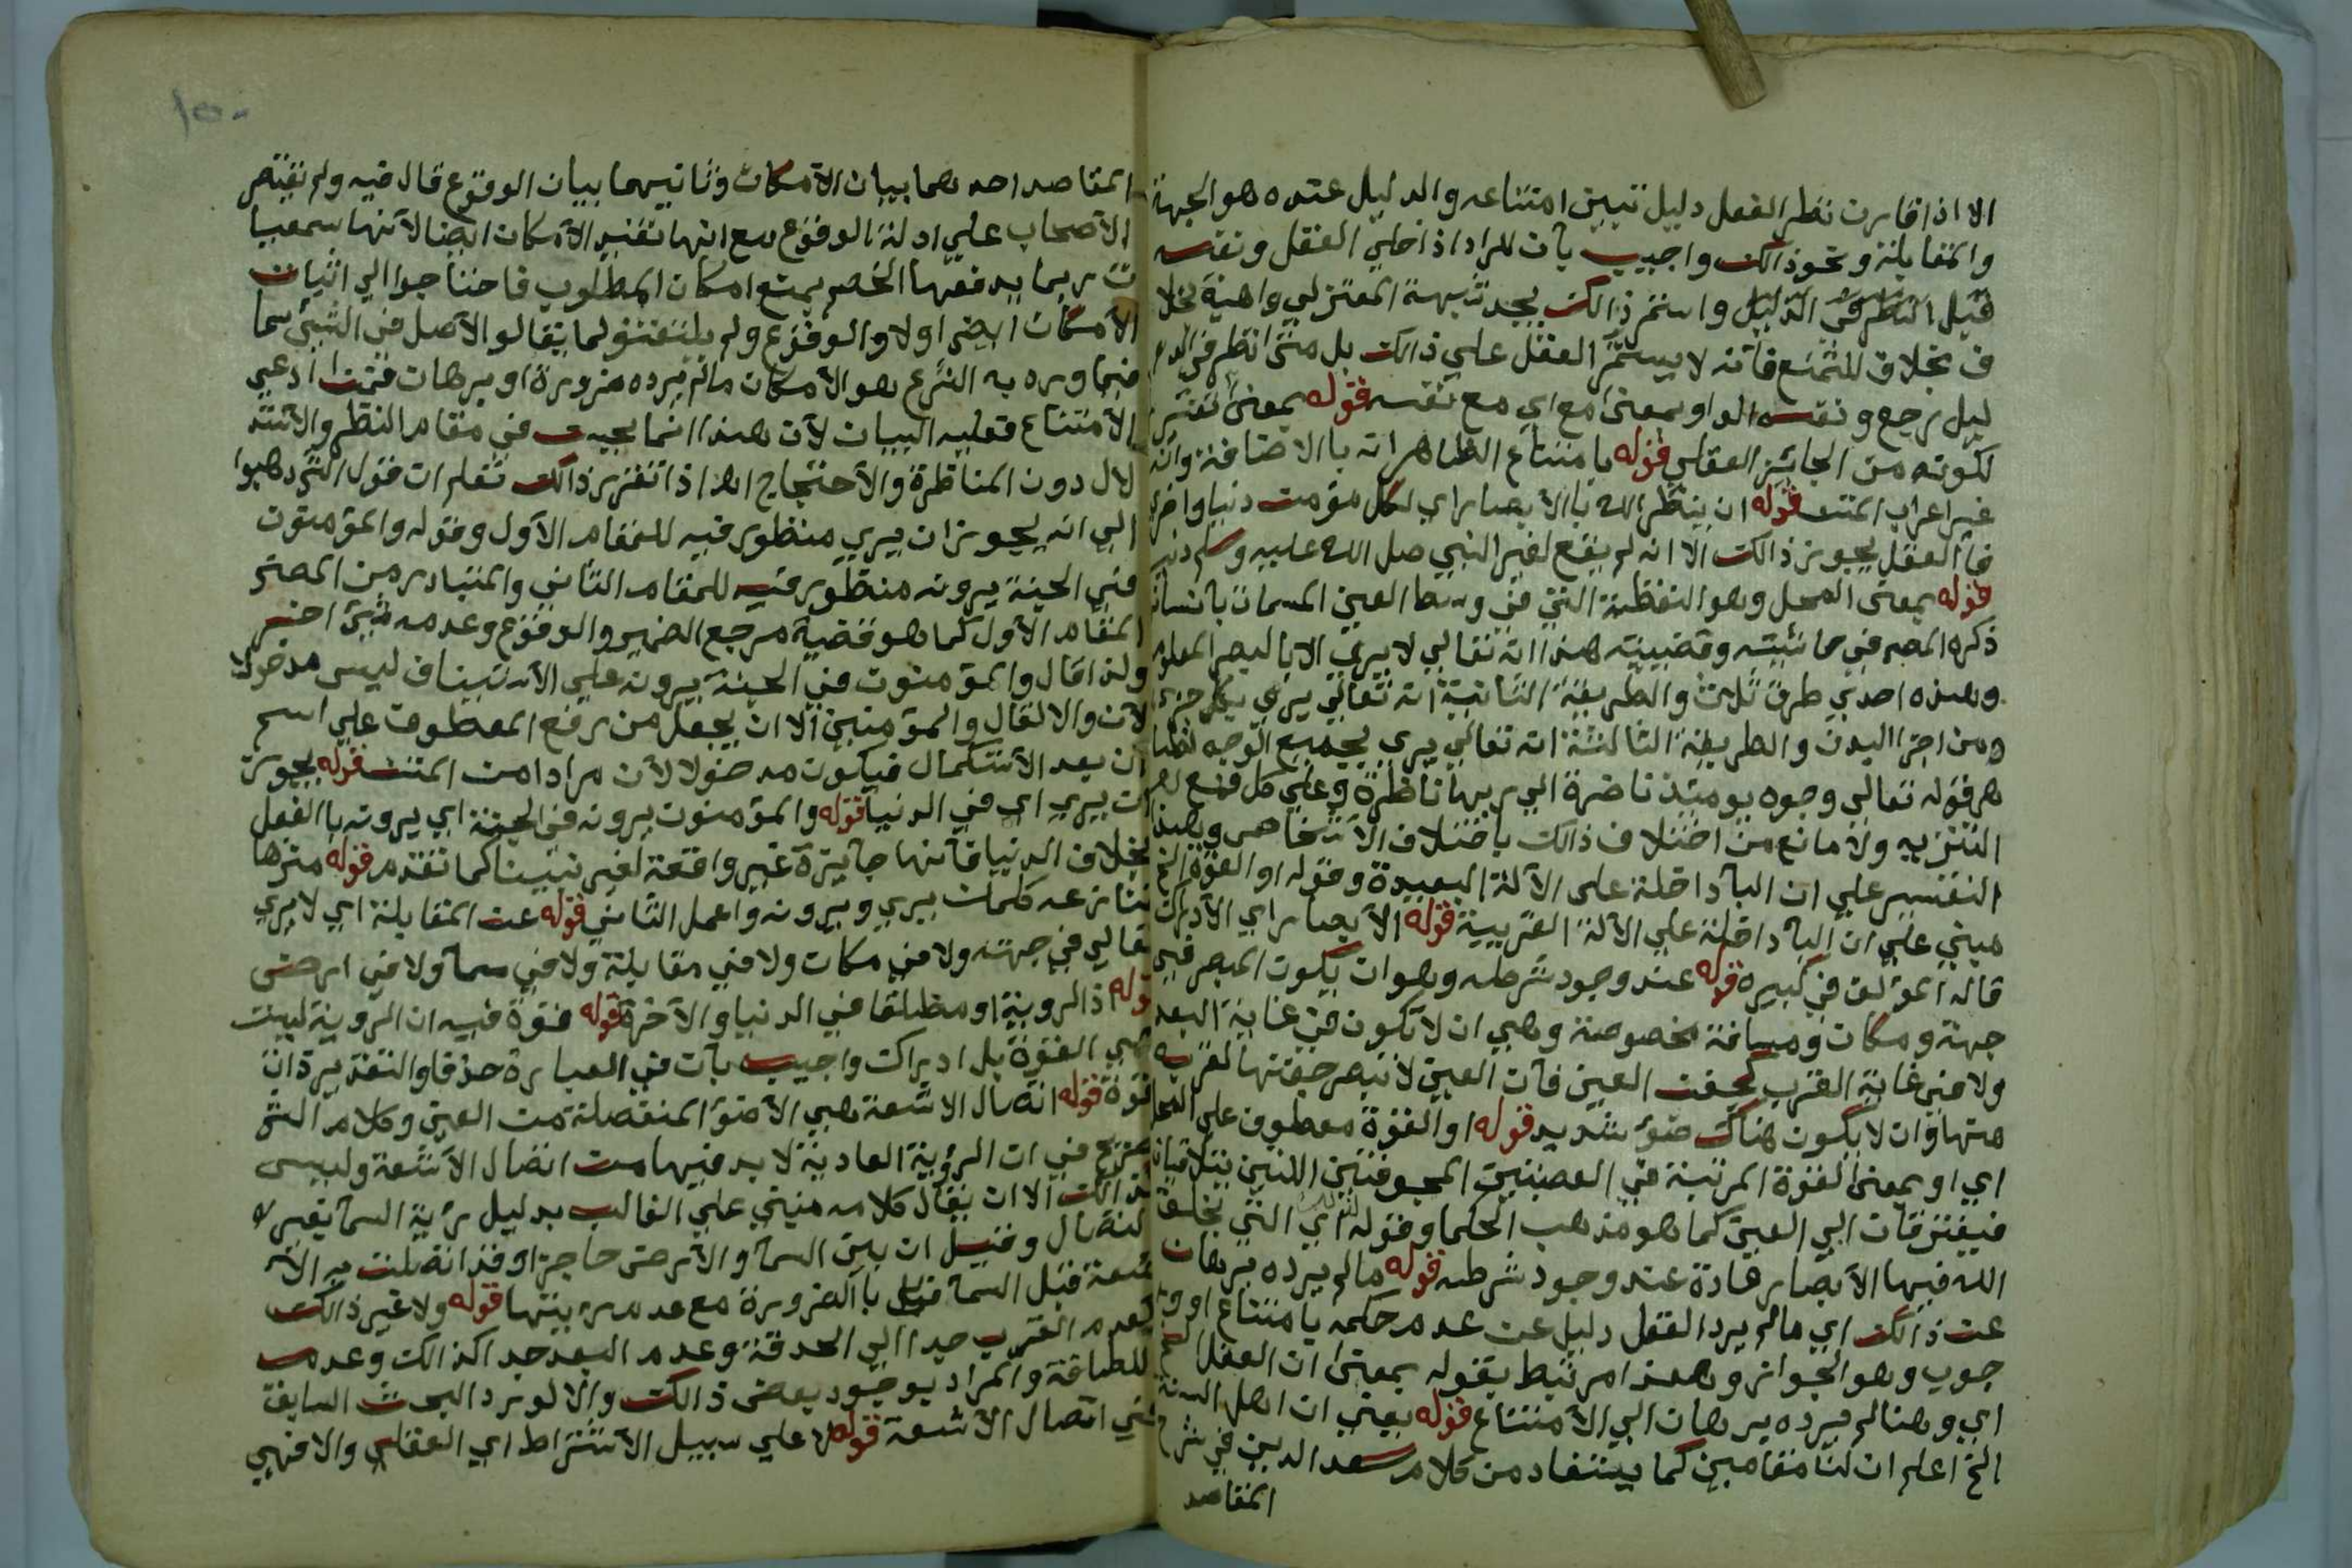 الا اذا قارن نظر العقل دليل تبيين امتناعه والدليل عنده هو الجهة
والمقابلة ونحو ذالك واجيب بأن المراد اذا خلي العقل ونفسه
قبل النظر في الدليل واستمر ذالك بجد شبهة المعتزلي واهية بخلا
ف بخلاف الممتنع فأنه لا يستمر العقل علي ذالك بل متى انظر في الد
ليل رجع ونفسه الواو بمعنى مع اي مع نفسه قوله بمعنى
لكونه من الجائز العقلي قوله بامتناع الظاهر انه بالاضافة وانه
غير اعراب المتن قوله ان ينظر الله بالأبصار اي لكل مؤمن دنيا واخرى
فأ العقل يجوز ذالك الا انه لم يقع لغير النبي صلى الله عليه وسلم دنيا
قوله بمعنى المحل وهو النقطة التي في وسط العين المسمات بانسان
ذكره المص في حاشيته وقضيته هذا انه تعالي لا يرى الا بالبصر المعلوم
وهذه احدي طرق ثلاث والطريقة الثانية انه تعالي يرى بكل جزء
ومن اجزا البدن والطريقة الثالثة انه تعالي يرى بجميع الوجه لظا
هر قوله تعالي وجوه يومئذ ناضرة الي ربها ناظرة وعلي كل فمع
التنزيه ولا مانع من اختلاف ذالك باختلاف الاشخاص وهذا
التفسير علي ان البأ داخلة على الآلة البعيدة وقوله او القوة الخ
مبني علي ان البأ داخلة علي الآلة القريبة قوله الأبصار اي الأدراك
قاله المؤلف في كبيره قوله عند وجود شرطه وهو ان يكون المبصر في
جهة ومكان ومسافة مخصوصة وهي ان لا تكون في غاية البعد
ولا في غاية القرب كجفن العين فأن العين لا تبصر جفنها لقربه
منها وان لا يكون هناك ضوء شديد قوله او القوة معطوف علي المحل
اي او بمعنى القوة المرتبة في العصبتين المجوفتين اللتين يتلاقيان
فيفترقان الي العين كما هو مذهب الحكما وقوله اي التي يخلق
الله فيها الأبصار عادة عند وجود شرطه قوله ما لم يرده برهان
عن ذالك اي ما لم يرد العقل دليل عن عدم حكمه بامتناع او و
جوب وهو الجواز وهذا مرتبط بقوله بمعنى ان العقل الخ
اي وهنا لم يرده برهان الي الأمتناع قوله يعني ان اهل السنة
الخ اعلم ان لنا مقامين كما يستفاد من كلام سعد الدين في شرح
المقاصد
١٥٠
المقاصد احدهما بيان الأمكان وثانيهما بيان الوقوع قال فيه ولم نقتصر
الأصحاب علي ادلة الوقوع مع انها تفيد الأمكان ايضا لأنها سمعيا
ت ربما يدفعها الخصم بمنع امكان المطلوب فاحتاجوا الي اثبات
الأمكان ايض اولا والوقوع ولم يلتفتو لما يقالو الأصل في الشئ سما
فيما ورد به الشرع هو الأمكان ما لم يرده ضرورة او برهان فمن ادعي
الأمتناع فعليه البيان لأن هذا انما يجيء في مقام النظر والأستد
لال دون المناظرة والأحتجاج اه اذا تقرر ذالك تعلم ان قول الش ذهبوا
الي انه يجوز ان يرى منظور فيه للمقام الأول وقوله والمؤمنون
في الجنة يرونه منظور فيه للمقام الثاني والمتبادر من المص
المقام الأول كما هو قضية مرجع الضمير والوقوع وعدمه شئ اخر
ولذا قال والمؤمنون في الجنة يرونه علي الأستيناف ليس مدخولا
لأن والا لقال والمؤمنين الا ان يجعل من رفع المعطوف علي اسم
أن بعد الأستكمال فيكون مدخولا لأن مرادا من المتن قوله يجوز
ان يرى اي في الدنيا قوله والمؤمنون يرونه في الجنة اي يرونه بالفعل
بخلاف الدنيا فأنها جايزة غير واقعة لغير نبينا كما تقدم قوله منزها
تنازعه كلمات يرى ويرونه واعمل الثاني قوله عن المقابلة اي لا يرى
تعالي في جهته ولا في مكان ولا في مقابلة ولا في سمآ ولا في ارض
قوله اذ الروية او مطلقا في الدنيا والآخرة قوله قوة فيه ان الروية ليست
هي القوة بل ادراك واجيب بأن في العبارة حذفا والتقدير ذات
قوة قوله اتصال الاشعة هي الأضوا المنفصلة من العين وكلام الش
صريح في ان الرؤية العادية لا بد فيها من اتصال الأشعة وليس
كذالك الا ان يقال كلامه مبني علي الغالب بدليل رأية السمآ بغير
اتصال وقيل ان بين السمآ والأرض حاجزا وقد اتصلت به الأ
شعة قبل السمآ بالضرورة مع عدم رء ينتها قوله ولا غير ذالك
كعدم القرب جدا الي الحدقة وعدم البعد جدا كذالك وعدم
اللطافة والمراد بوجود بعض ذالك والا لورد البحث السابق
في اتصال الأشعة قوله لا علي سبيل الأشتراط اي العقلي والا فهي